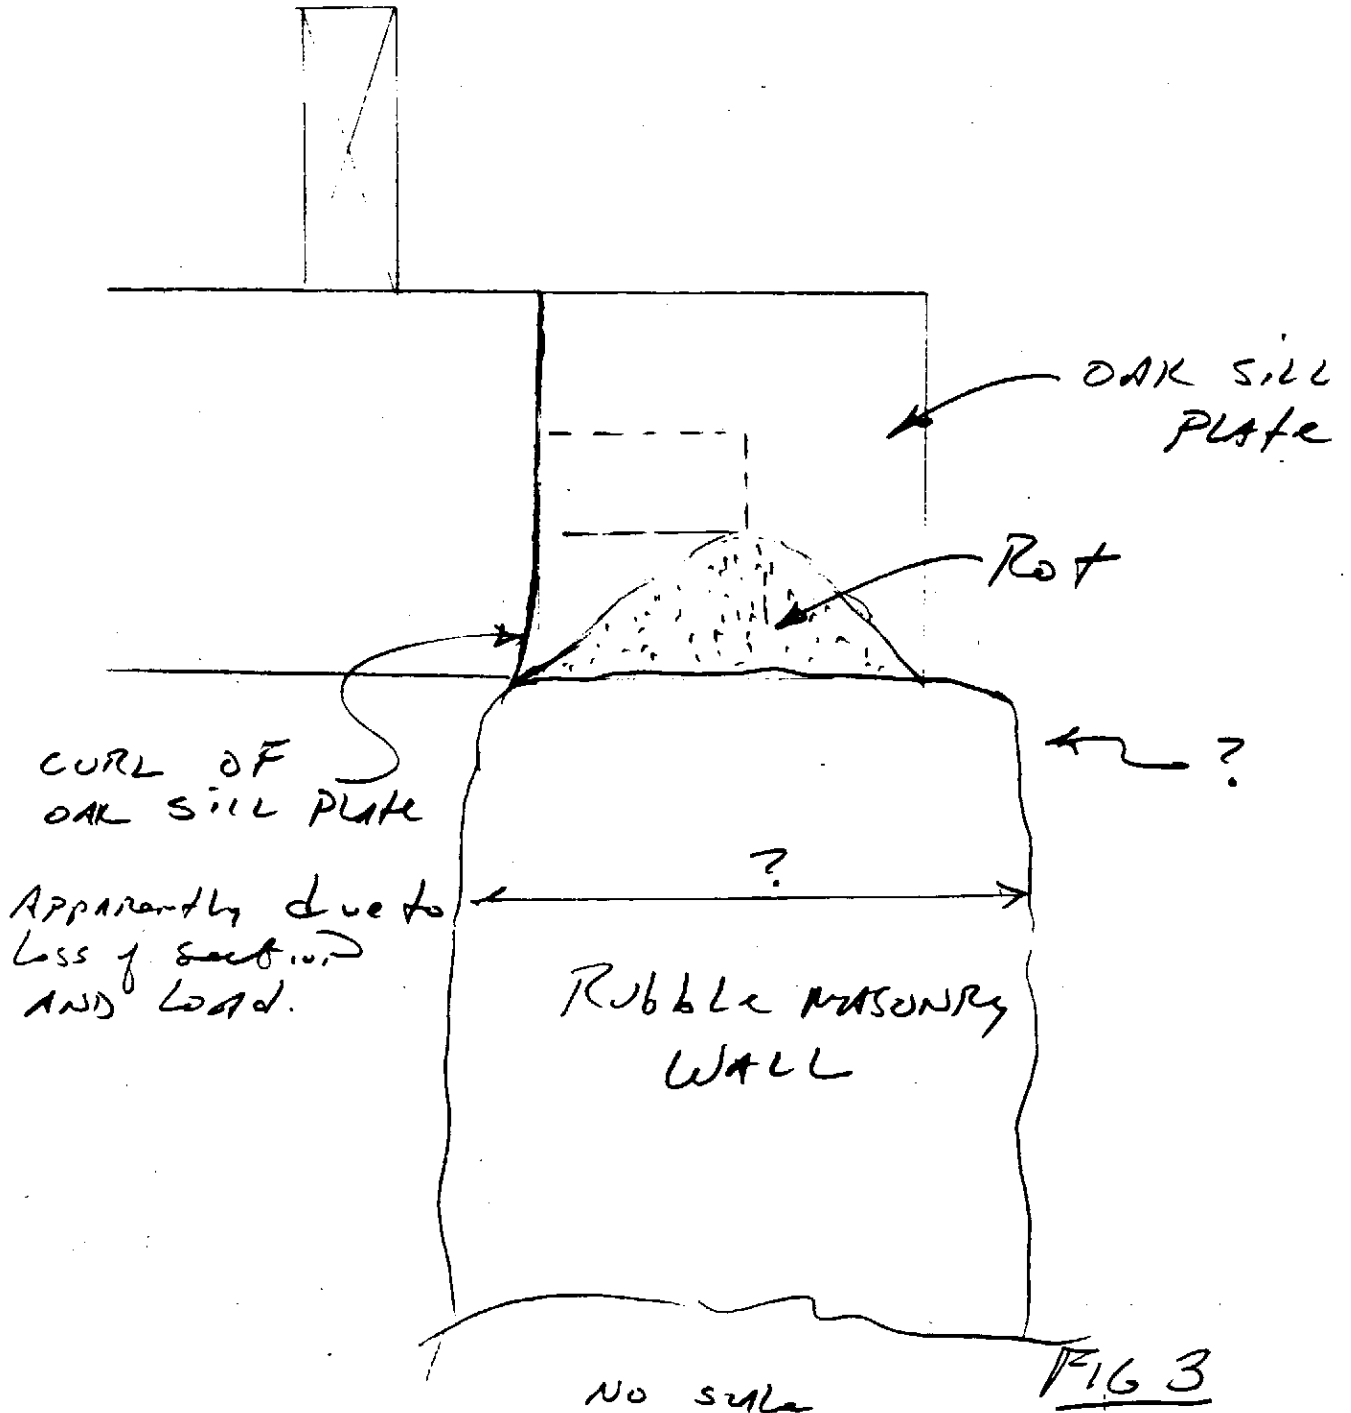 OAK SILL
PLATE
ROT
CURL OF
OAK SILL PLATE
Apparently due to
Loss of section
AND LOAD.
?
?
Rubble MASONRY
WALL
NO SCALE
FIG 3